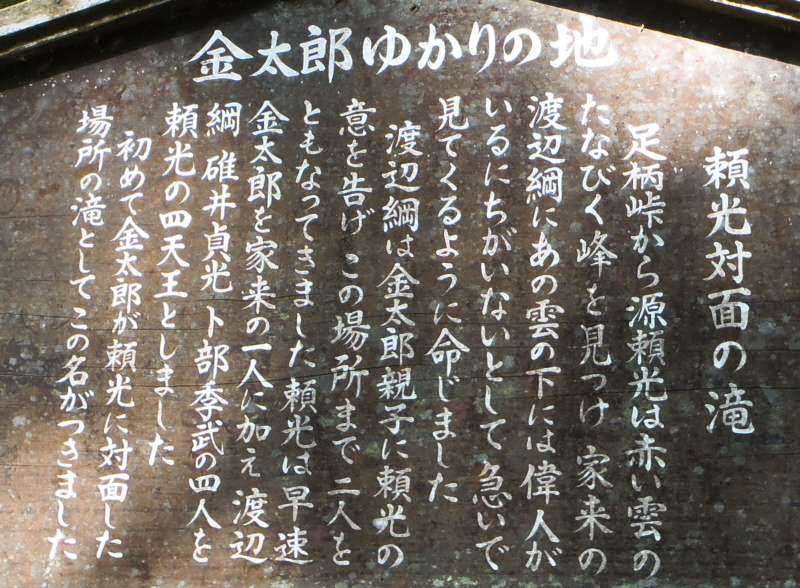 金太郎ゆかりの地
頼光対面の滝
足柄峠から源頼光は赤い雲の
たなびく峰を見つけ 家来の
渡辺綱にあの雲の下には偉人が
いるにちがいないとして 急いで
見てくるように命じました
渡辺綱は金太郎親子に頼光の
意を告げ この場所まで二人を
ともなってきました 頼光は早速
金太郎を家来の一人に加え 渡辺
綱 碓井貞光 卜部季武の四人を
頼光の四天王としました
初めて金太郎が頼光に対面した
場所の滝としてこの名がつきました